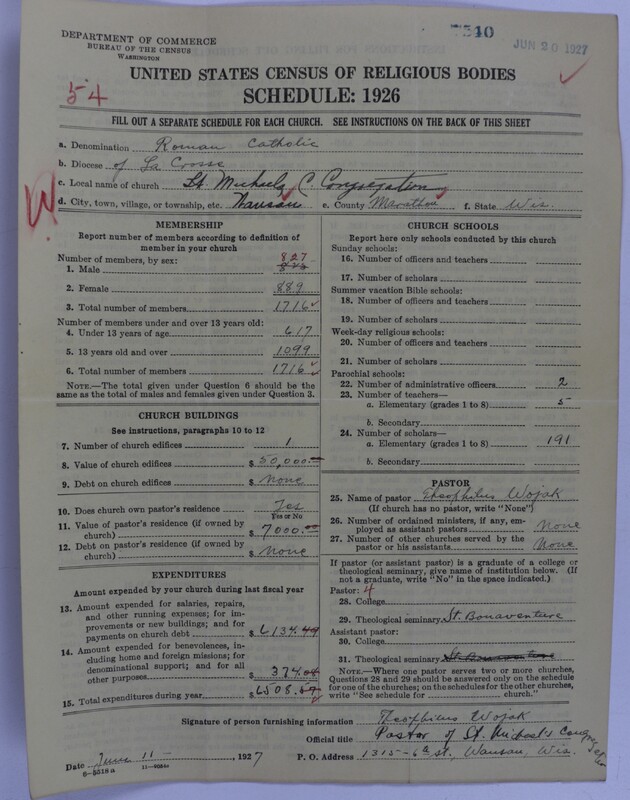 7540
JUN 20 1927
DEPARTMENT OF COMMERCE
BUREAU OF THE CENSUS
WASHINGTON
UNITED STATES CENSUS OF RELIGIOUS BODIES
54
SCHEDULE: 1926
FILL OUT A SEPARATE SCHEDULE FOR EACH CHURCH. SEE INSTRUCTIONS ON THE BACK OF THIS SHEET
a. Denomination Roman Catholic
b. Diocese of La Crosse
c. Local name of church St. Michaels C. Congregation
W
d. City, town, village, or township, etc. Wausau e. County Marathon f. State Wis.
MEMBERSHIP
Report number of members according to definition of
member in your church
Number of members, by sex: 827
1. Male
2. Female 889
3. Total number of members 1716
Number of members under and over 13 years old:
4. Under 13 years of age 617
5. 13 years old and over 1099
6. Total number of members 1716
NOTE.—The total given under Question 6 should be
same as the total of males and females given under Question 3.
CHURCH BUILDINGS
See instructions, paragraphs 10 to 12
7. Number of church edifices 1
8. Value of church edifices $ 50,000.
9. Debt on church edifices $ None
10. Does church own pastor's residence Yes
Yes or No
11. Value of pastor's residence (if owned by
church) $ 7000.00
12. Debt on pastor's residence (if owned by
church) $ None
EXPENDITURES
Amount expended by your church during last fiscal year
13. Amount expended for salaries, repairs,
and other running expenses; for im-
provements or new buildings; and for
payments on church debt $ 6134.49
14. Amount expended for benevolences, in-
cluding home and foreign missions; for
denominational support; and for all
other purposes 374.
15. Total expenditures during year $ 6508.
CHURCH SCHOOLS
Report here only schools conducted by this church
Sunday schools:
16. Number of officers and teachers
17. Number of scholars
Summer vacation Bible schools:
18. Number of officers and teachers
19. Number of scholars
Week-day religious schools:
20. Number of officers and teachers
21. Number of scholars
Parochial schools:
22. Number of administrative officers 2
23. Number of teachers—
a. Elementary (grades 1 to 8) 5
b. Secondary
24. Number of scholars—
a. Elementary (grades 1 to 8) 191
b. Secondary
PASTOR
25. Name of pastor Theophilus Wojak
(If church has no pastor, write "None")
26. Number of ordained ministers, if any, em-
ployed as assistant pastors None
27. Number of other churches served by the
pastor or his assistants None
If pastor (or assistant pastor) is a graduate of a college or
theological seminary, give name of institution below. (If
not a graduate, write "No" in the space indicated.)
Pastor: 4
28. College
29. Theological seminary St. Bonaventure
Assistant pastor:
30. College
31. Theological seminary St. Bonaventure
NOTE.—Where one pastor serves two or more churches,
Questions 28 and 29 should be answered only on the schedule
for one of the churches; on the schedules for the other churches,
write "See schedule for church."
Signature of person furnishing information Theophilus Wojak
Official title Pastor of St. Michael's Congregation
Date June 11 - , 1927 P. O. Address 1315-6th st., Wausau, Wis.